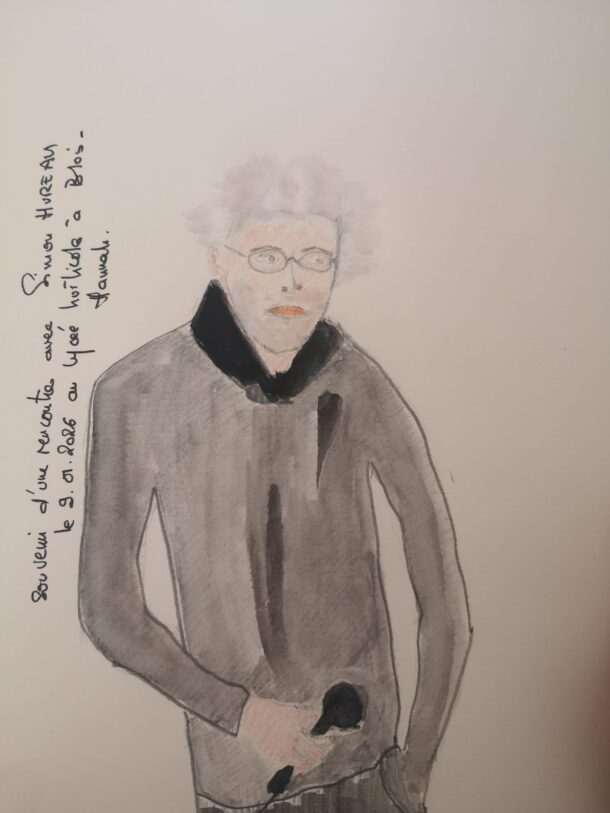 Souvenir d'une rencontre avec Simon HUREAU
le 9.01.2026 au lycée horticole à Blois -
Hannah.